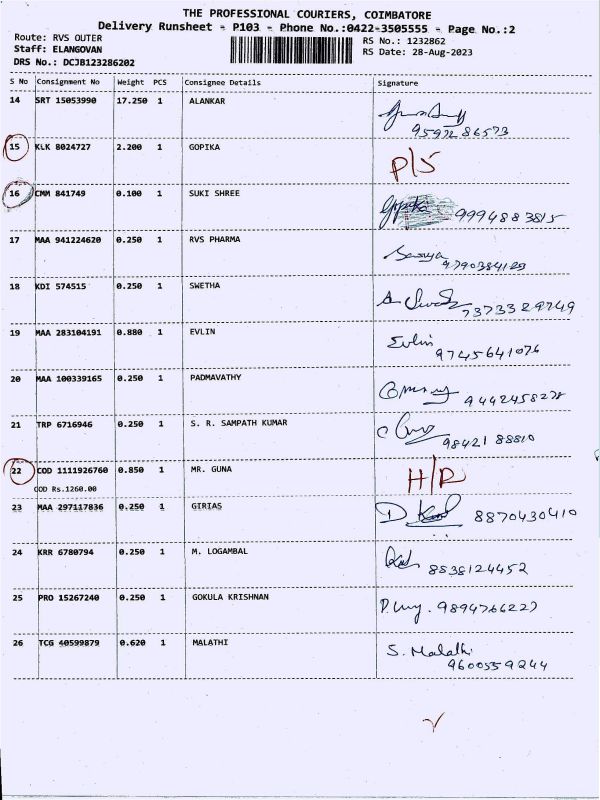 THE PROFESSIONAL COURIERS, COIMBATORE
Delivery Runsheet - P103 - Phone No.:0422-3505555 - Page No.:2
Route: RVS OUTER RS No.: 1232862
Staff: ELANGOVAN RS Date: 28-Aug-2023
DRS No.: DCJB123286202
S No Consignment No Weight PCS Consignee Details Signature
14 SRT 15053990 17.250 1 ALANKAR
9597286573
15 KLK 8024727 2.200 1 GOPIKA
P/S
16 CMM 841749 0.100 1 SUKI SHREE
Gopika 9994883815
17 MAA 941224620 0.250 1 RVS PHARMA
9790384129
18 KDI 574515 0.250 1 SWETHA
7373329749
19 MAA 283104191 0.880 1 EVLIN
Evlin
9745641076
20 MAA 100339165 0.250 1 PADMAVATHY
9442458278
21 TRP 6716946 0.250 1 S. R. SAMPATH KUMAR
98421 88810
22 COD 1111926760 0.850 1 MR. GUNA
COD Rs.1260.00
H/R
23 MAA 297117836 0.250 1 GIRIAS
8870430410
24 KRR 6780794 0.250 1 M. LOGAMBAL
8838124452
25 PRO 15267240 0.250 1 GOKULA KRISHNAN
9894766227
26 TCG 40599879 0.620 1 MALATHI
S. Malathi
9600559244